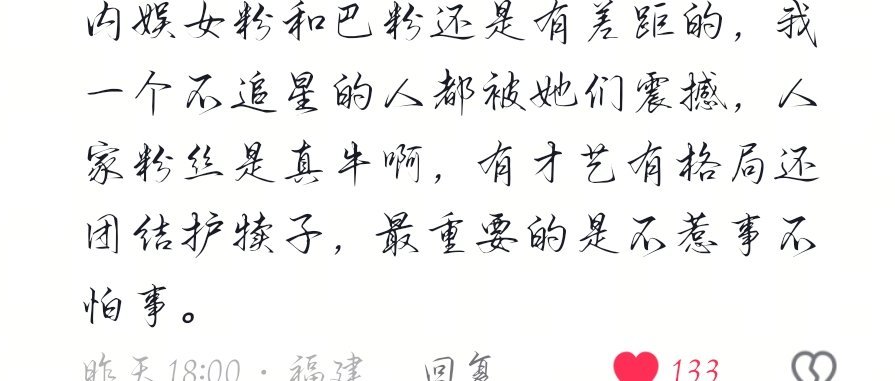 内娱女粉和巴粉还是有差距的，我
一个不追星的人都被她们震撼，人
家粉丝是真牛啊，有才艺有格局还
团结护犊子，最重要的是不惹事不
怕事。
昨天 18:00 · 福建 回复 133